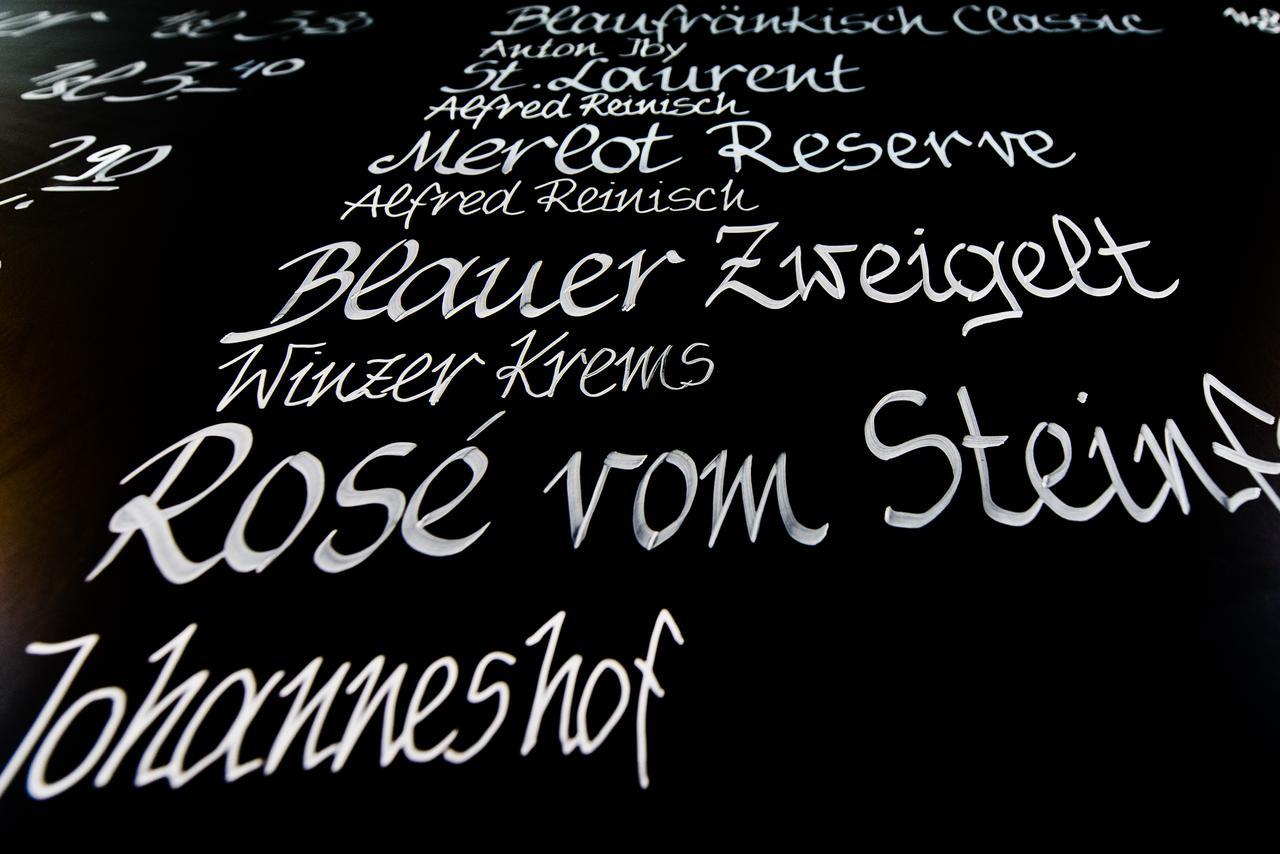 Blaufränkisch Classic
Anton Iby
St. Laurent
Alfred Reinisch
Merlot Reserve
Alfred Reinisch
Blauer Zweigelt
Winzer Krems
Rosé vom Steinf
Johanneshof
3,80
3,40
2,90